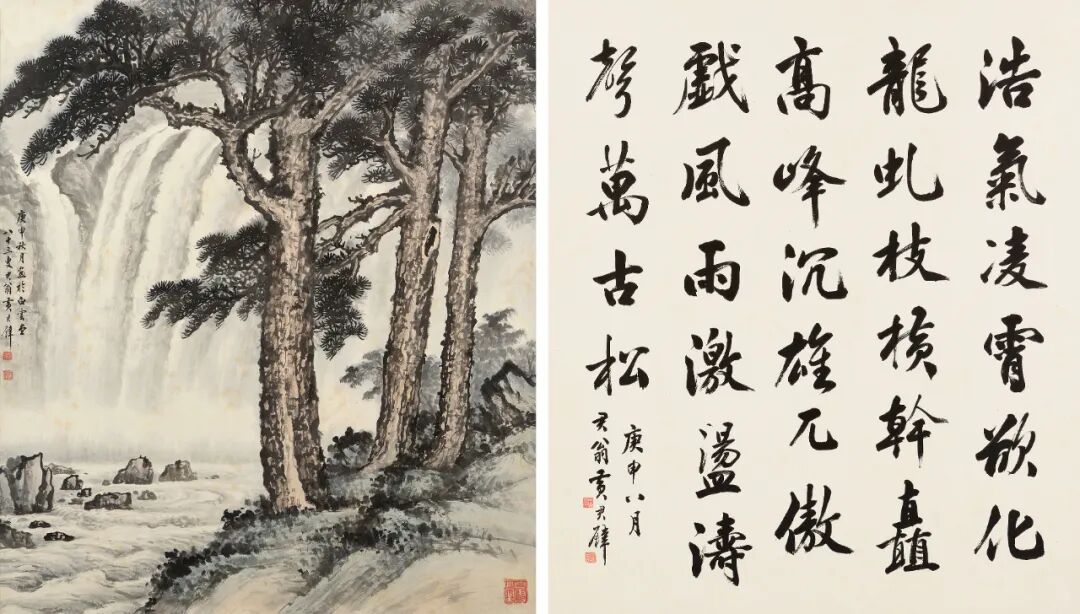 浩氣凌霄欲化
龍虬枝橫幹矗
高峰沉雄兀傲
戲風雨激盪濤
聲萬古松
庚申八月
君翁黃君璧
庚申秋月畫於白雲堂
八十三叟君翁黃君璧